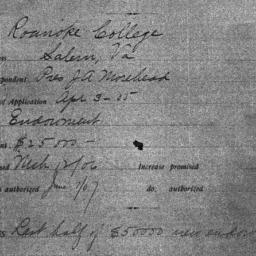 Roanoke College
Salem, Va
pondent Pres J.A. Morehead
of Application Apr 3-05
Endowment
nt $25000-
sed Mch 12/06 Increase promised
n authorized June 7/07 do. authorized
s Last half of $50000 new endow